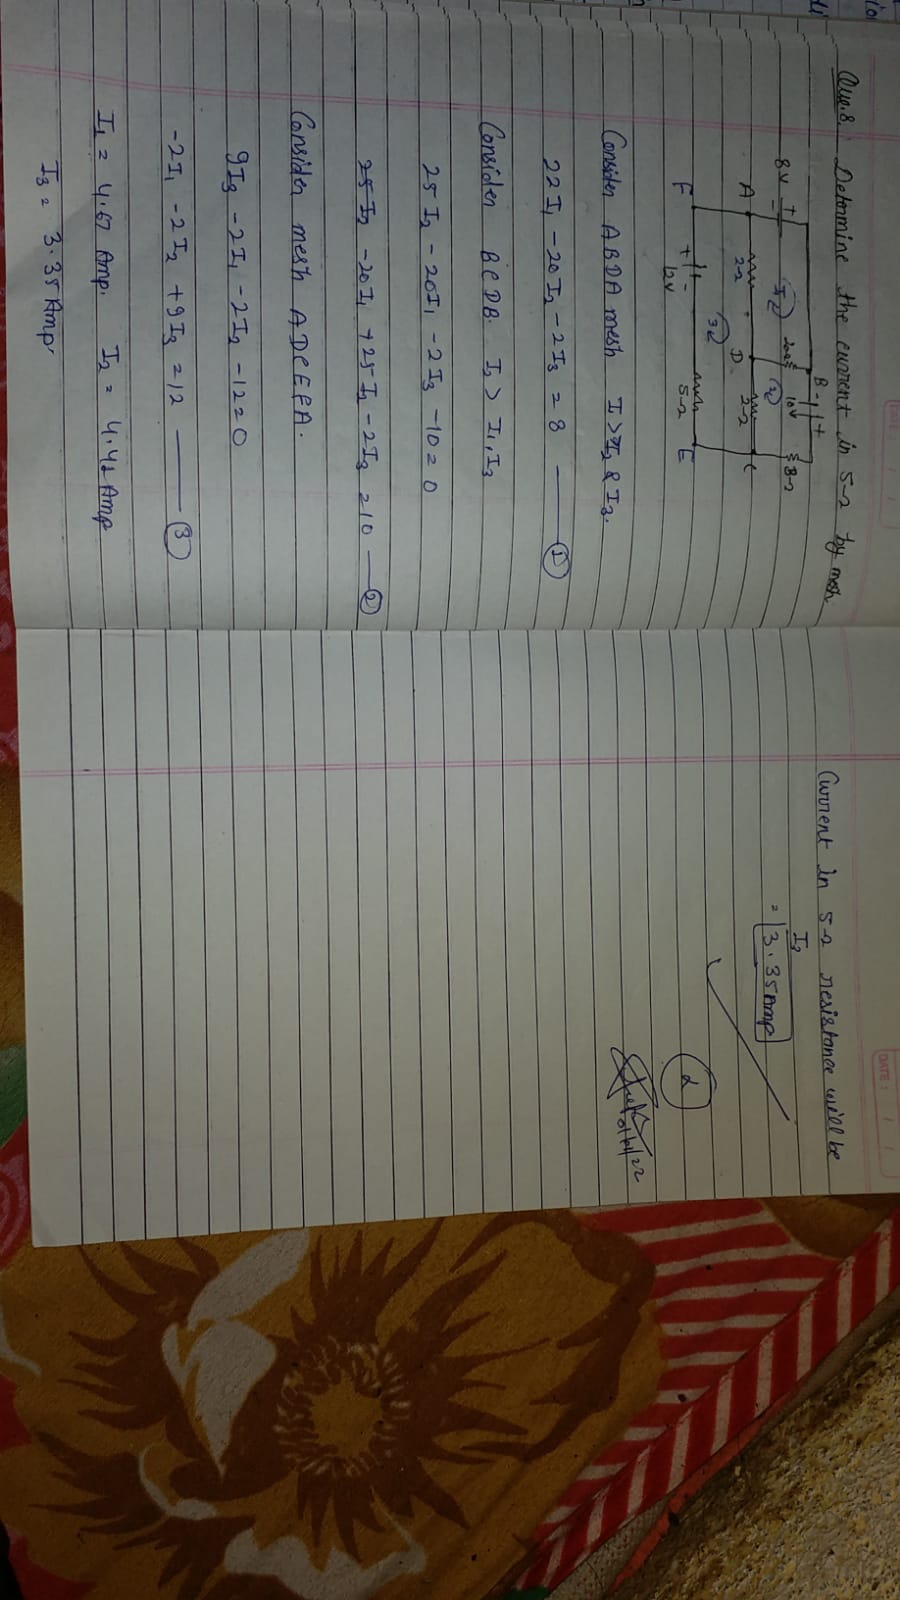 Que.8. Determine the current in 5Ω by mesh
8V + -
B - +
10V
8Ω
20Ω
I₂
A
2Ω
D
2Ω
C
I₃
F
+ -
12V
5Ω
E
Consider ABDA mesh I > I₂ & I₃.
22I₁ - 20I₂ - 2I₃ = 8 ——— ①
Consider BCDB. I₂ > I₁, I₃
25I₂ - 20I₁ - 2I₃ - 10 = 0
-20I₁ + 25I₂ - 2I₃ = 10 — ②
Consider mesh ADCEFA.
9I₃ - 2I₁ - 2I₂ - 12 = 0
-2I₁ - 2I₂ + 9I₃ = 12 ——— ③
I₁ = 4.67 Amp. I₂ = 4.42 Amp
I₃ = 3.35 Amp.
DATE: / /
Current in 5Ω resistance will be
I₃
= 3.35 Amp
2